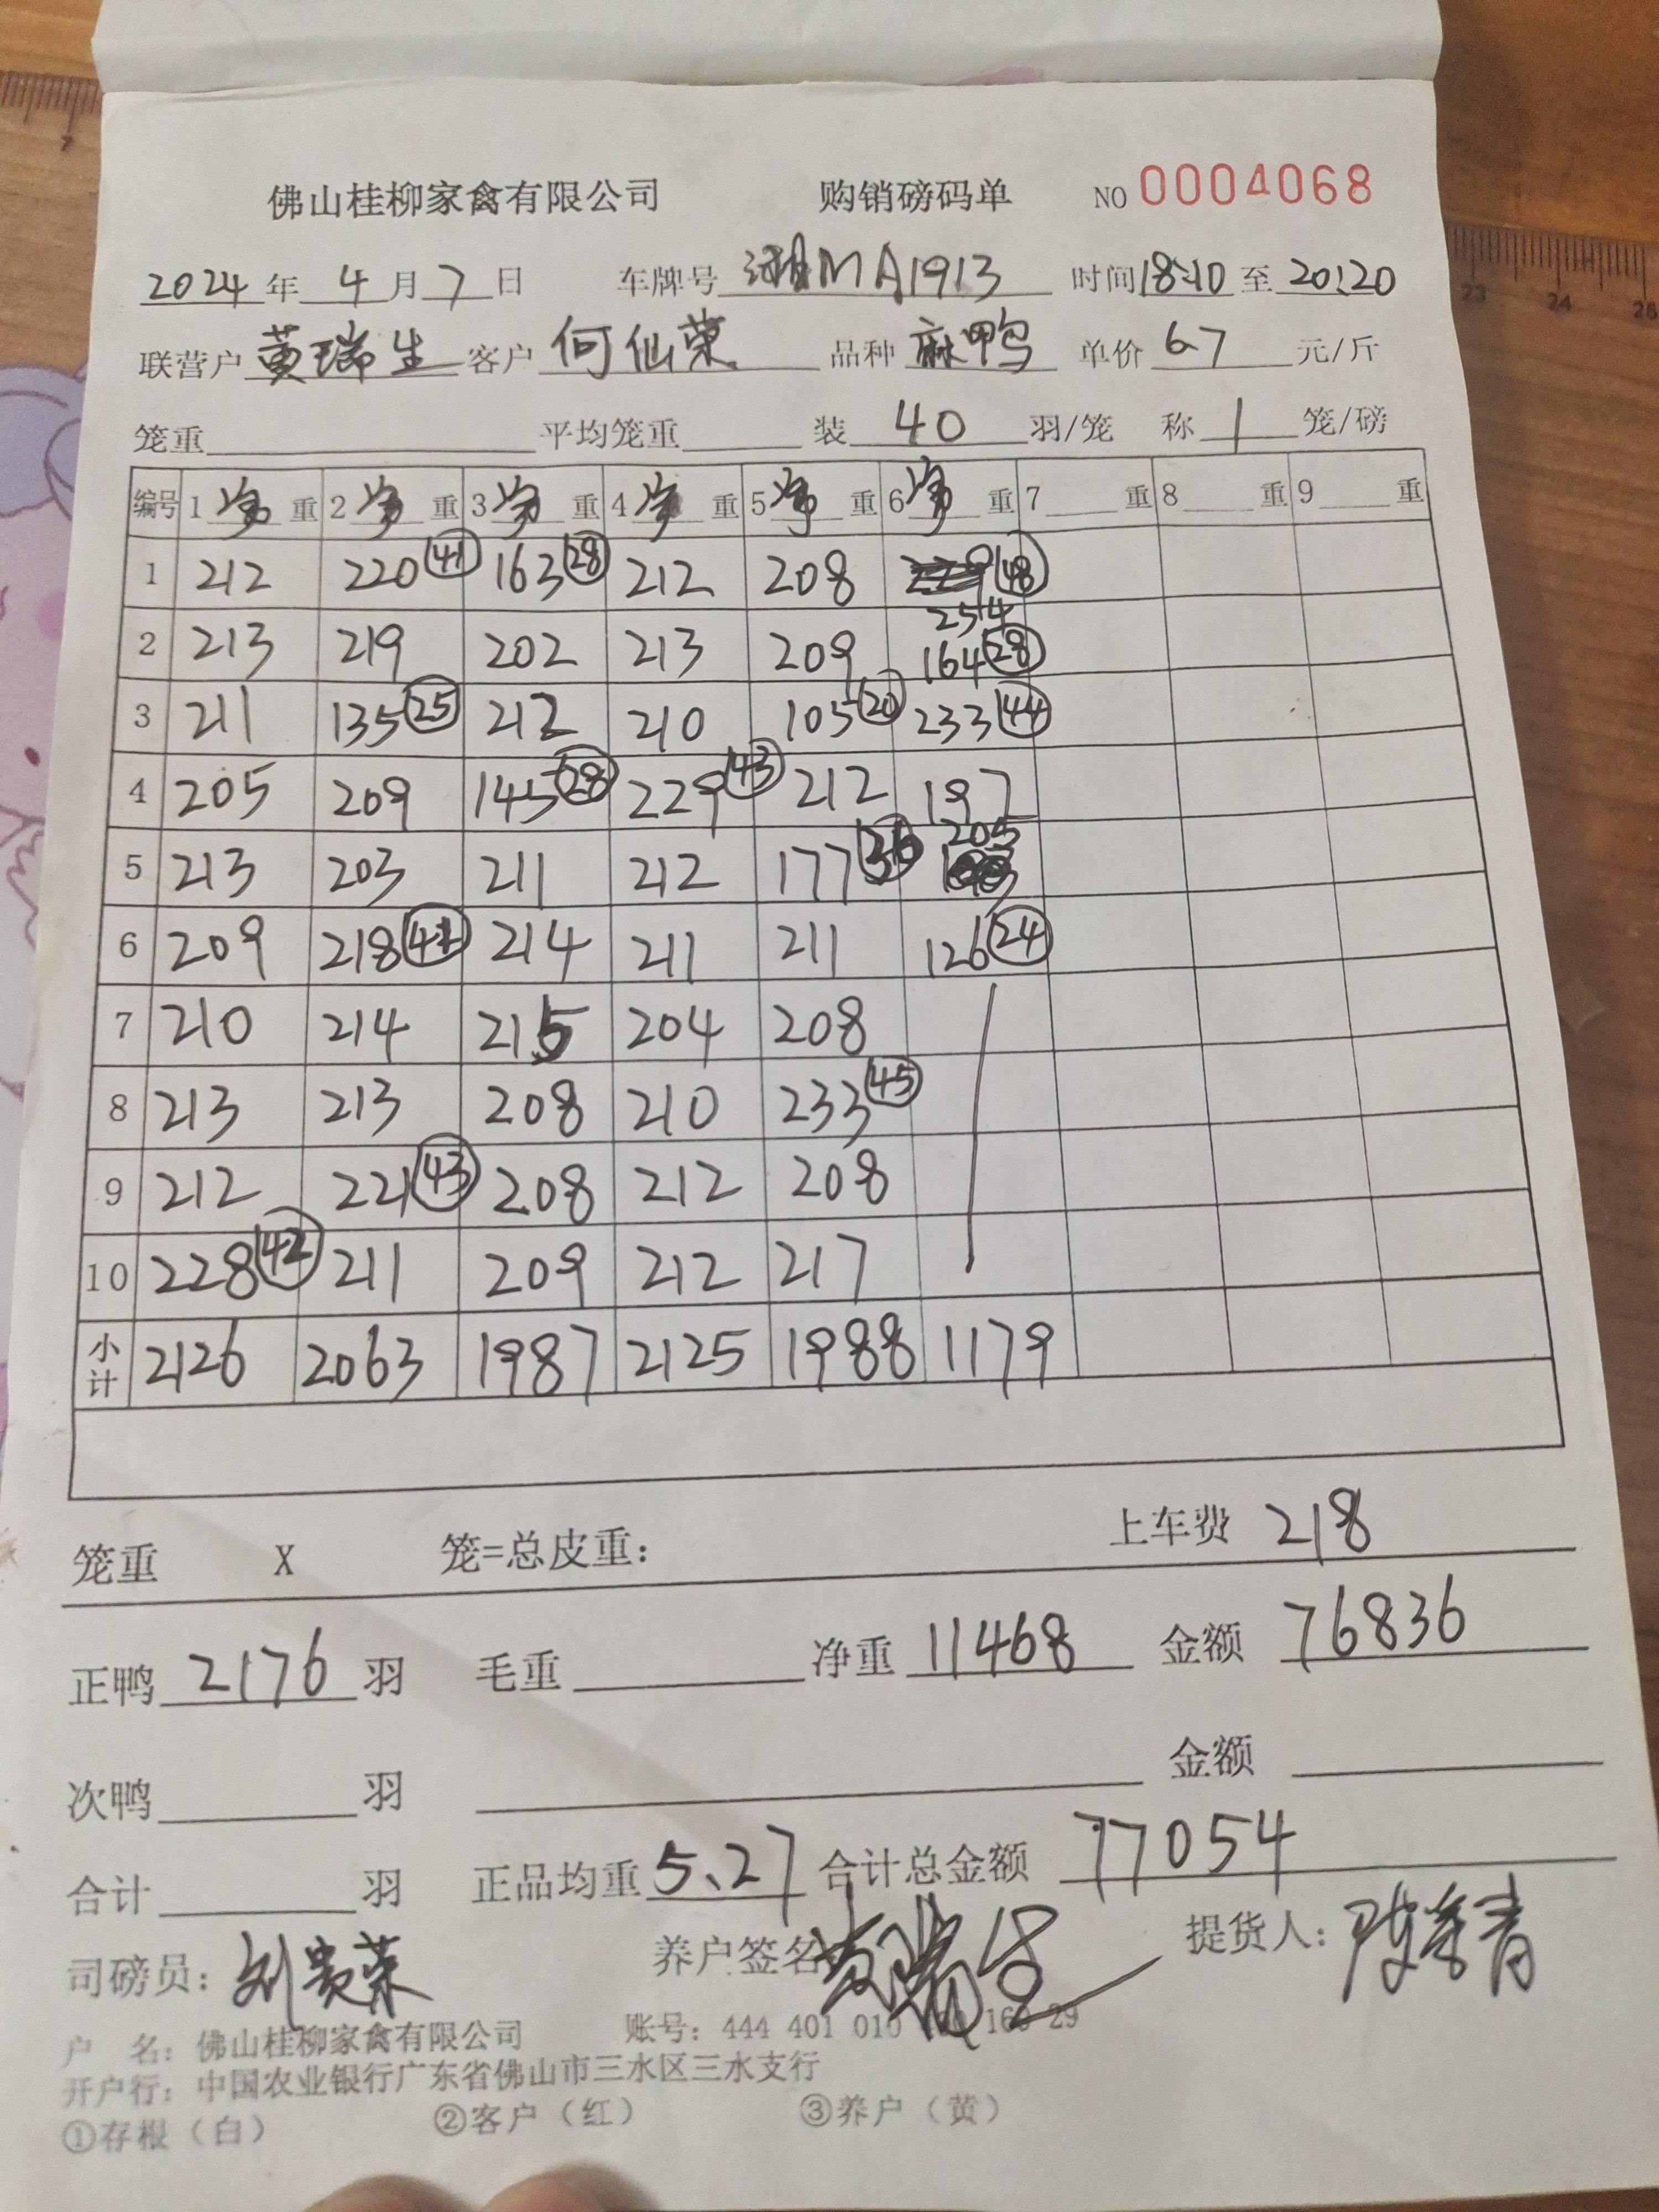 佛山桂柳家禽有限公司 购销磅码单 NO 0004068
2024年 4月7日 车牌号 湘MA1913 时间18:10至20:20
联营户 黄瑞生 客户 何仙荣 品种 麻鸭 单价 6.7 元/斤
笼重 平均笼重 装 40 羽/笼 称 1 笼/磅
编号 1净重 2净重 3净重 4净重 5净重 6净重 7 重 8 重 9 重
1 212 220(41) 163(28) 212 208 (48) 254
2 213 219 202 213 209 164(28)
3 211 135(25) 212 210 105(20) 233(44)
4 205 209 145(28) 229(43) 212 197
5 213 203 211 212 177(36) 205
6 209 218(42) 214 211 211 126(24)
7 210 214 215 204 208
8 213 213 208 210 233(45)
9 212 221(43) 208 212 208
10 228(42) 211 209 212 217
小计 2126 2063 1987 2125 1988 1179
笼重 X 笼=总皮重: 上车费 218
正鸭 2176 羽 毛重 净重 11468 金额 76836
次鸭 羽 金额
合计 羽 正品均重 5.27 合计总金额 77054
司磅员: 刘贵荣 养户签名 黄瑞生 提货人:
户 名: 佛山桂柳家禽有限公司 账号: 444 401 010 160 29
开户行: 中国农业银行广东省佛山市三水区三水支行
①存根（白） ②客户（红） ③养户（黄）